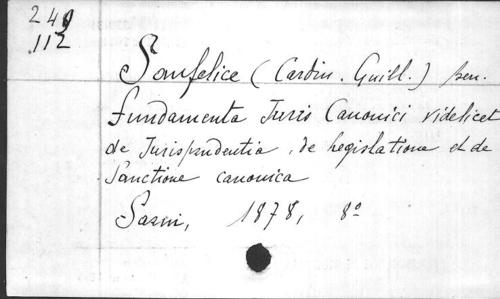 249
112
Sanfelice (Cardin. Guill.) sen.
Fundamenta Juris Canonici videlicet
de Jurisprudentia, de Legislatione et de
Sanctione canonica
1878, 8º